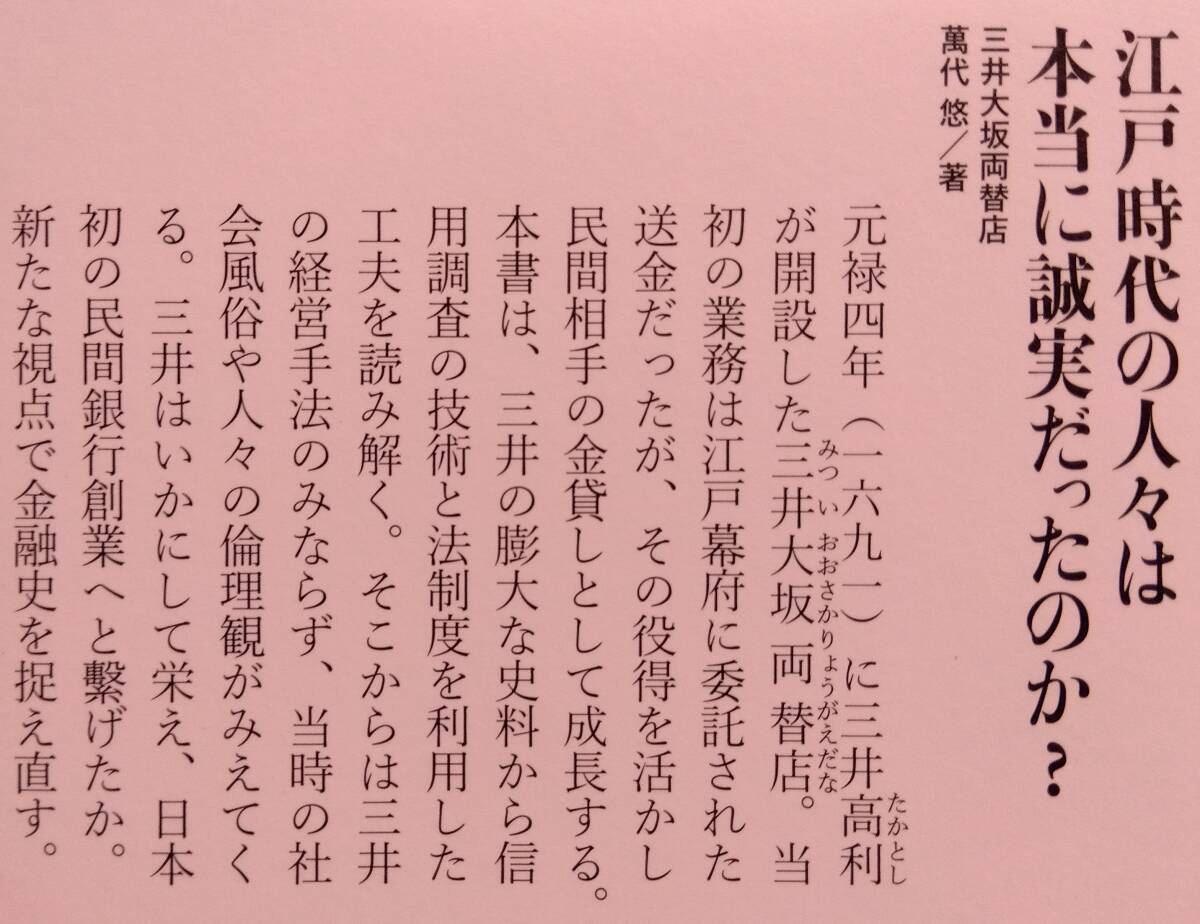 江戸時代の人々は
本当に誠実だったのか?
三井大坂両替店
萬代 悠/著
元禄四年(一六九一)に三井高利
たかとし
が開設した三井大坂両替店。当
みつい おおさかりょうがえだな
初の業務は江戸幕府に委託された
送金だったが、その役得を活かし
民間相手の金貸しとして成長する。
本書は、三井の膨大な史料から信
用調査の技術と法制度を利用した
工夫を読み解く。そこからは三井
の経営手法のみならず、当時の社
会風俗や人々の倫理観がみえてく
る。三井はいかにして栄え、日本
初の民間銀行創業へと繫げたか。
新たな視点で金融史を捉え直す。